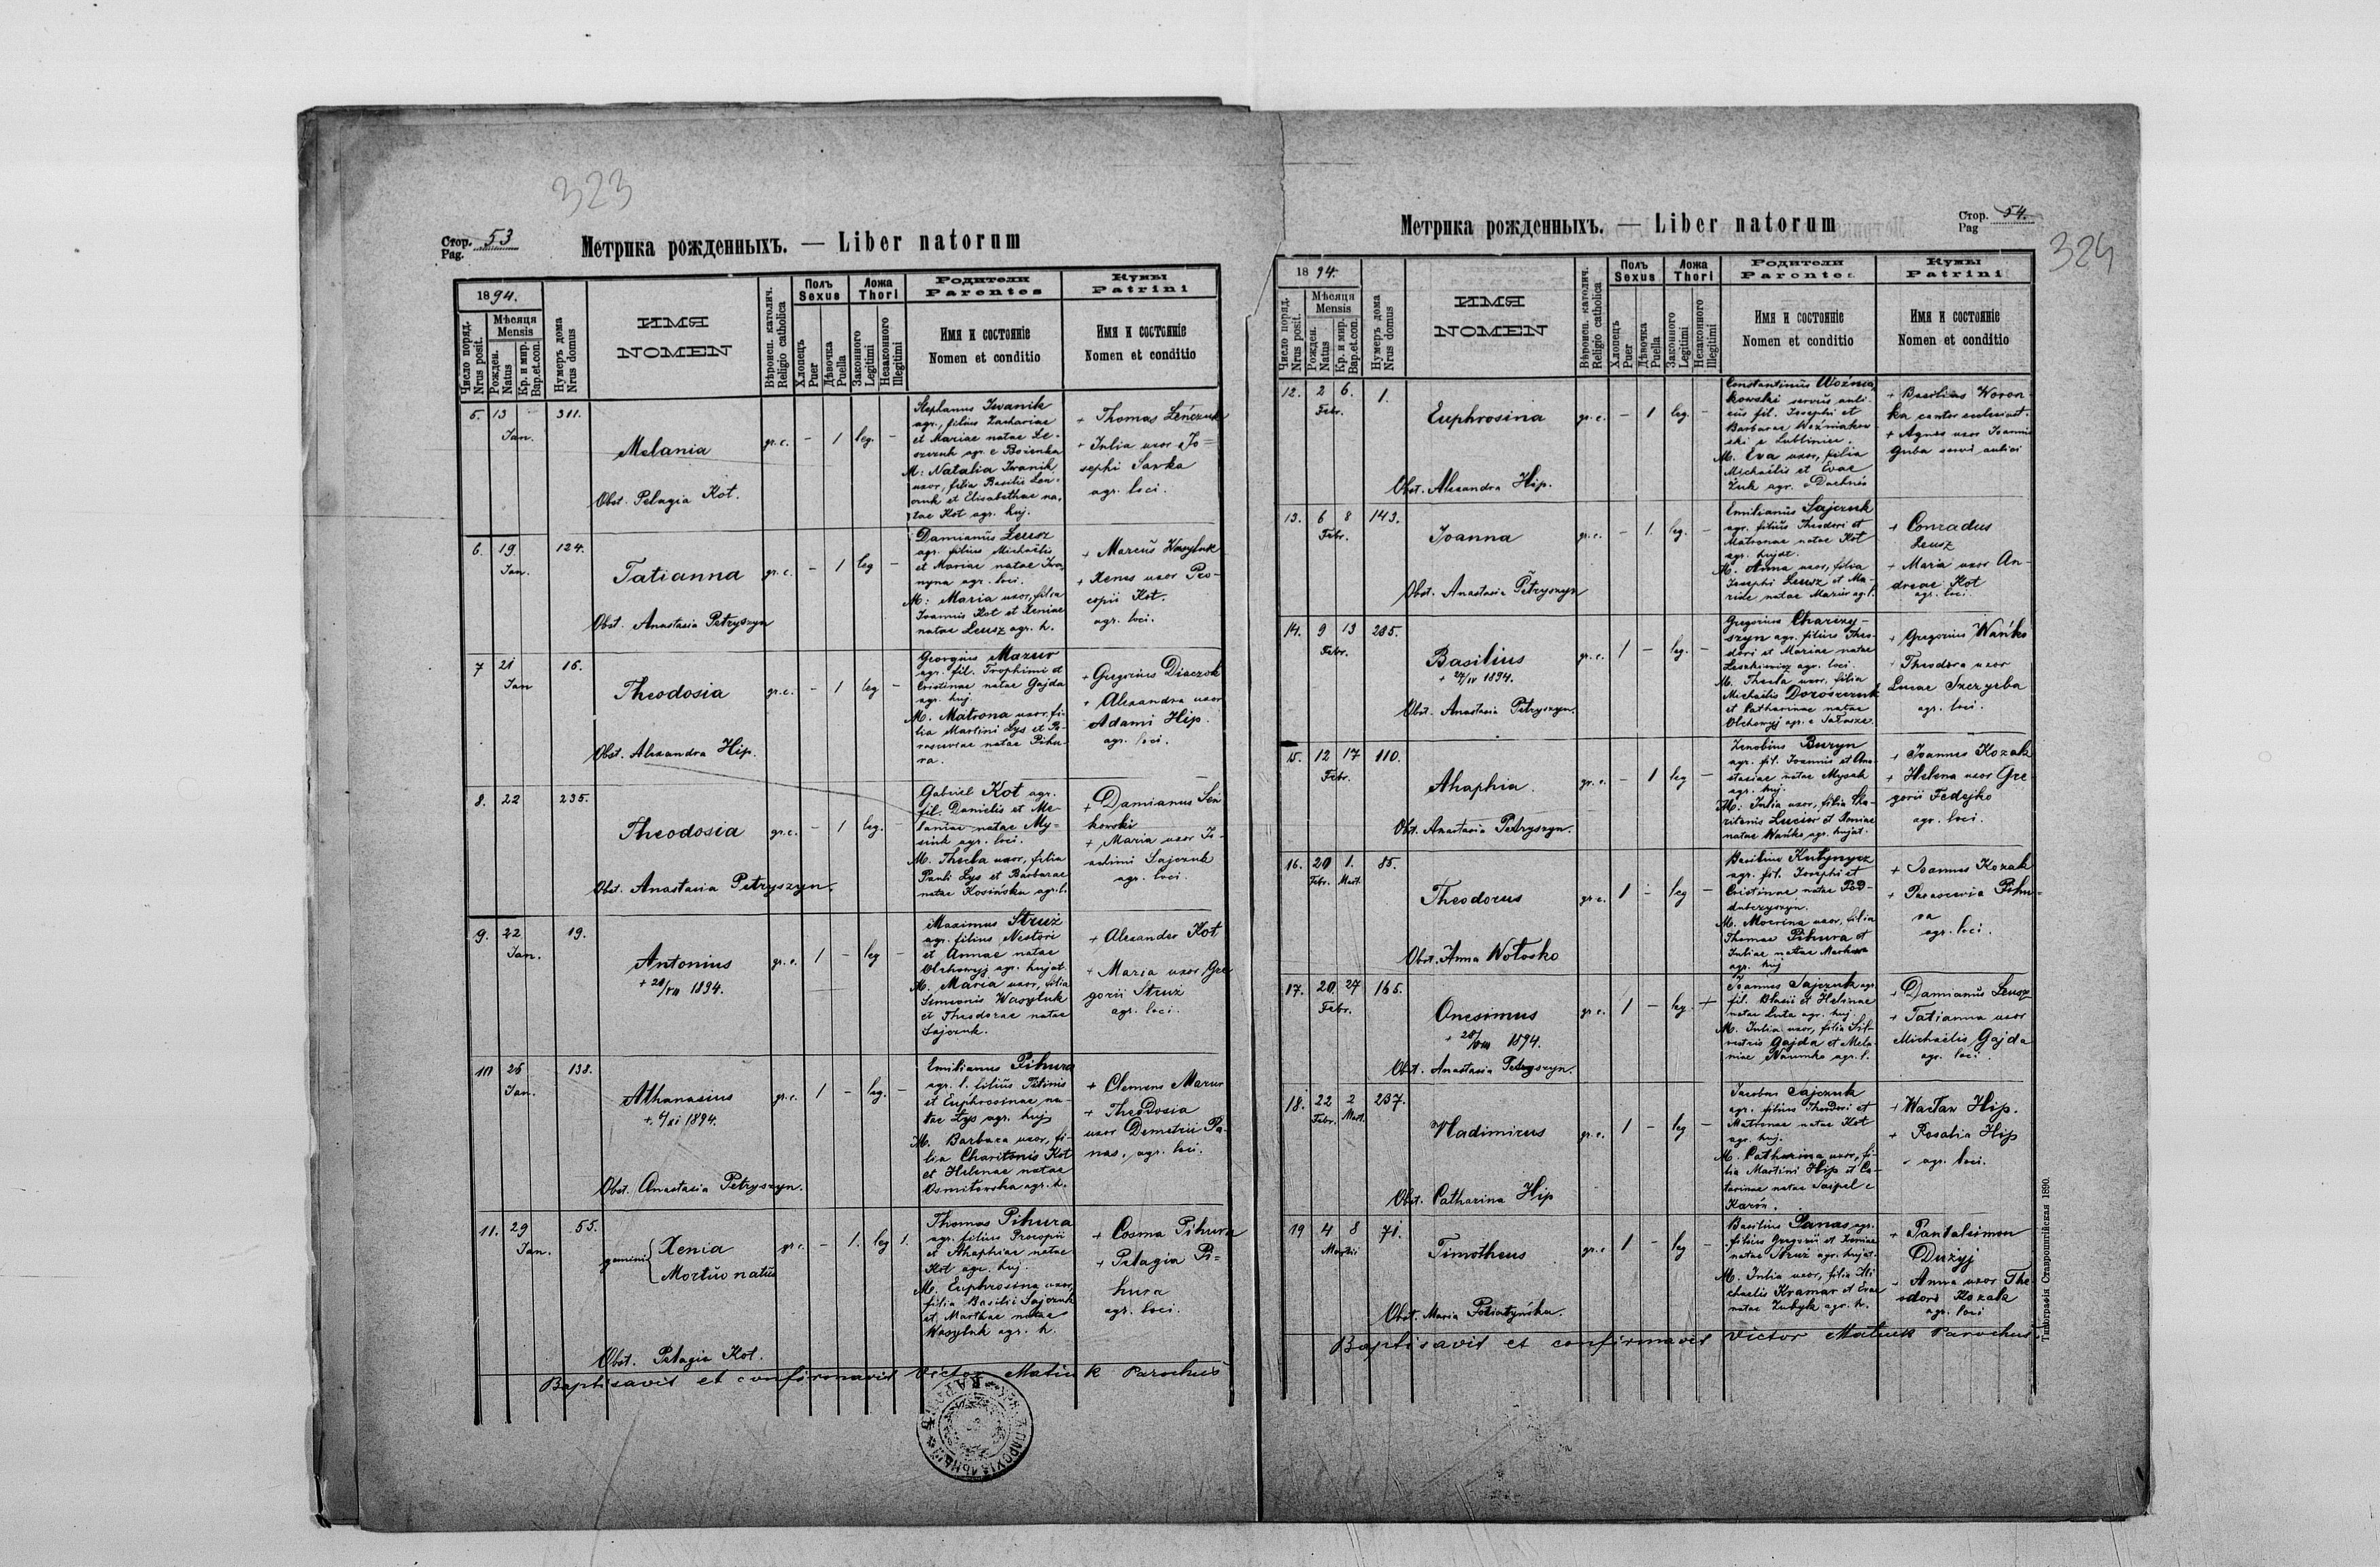 323
Стор. 53
Pag.
Метрика рожденныхъ. — Liber natorum
1894.
Число поряд.
Nrus posit.
Мѣсяця
Mensis
Рожден.
Natus
Кр. и мир.
Bap.et.con.
Нумеръ дома
Nrus domus
ИМЯ
NOMEN
Вѣроисп. католич.
Religio catholica
Полъ
Sexus
Хлопецъ
Puer
Дѣвочка
Puella
Ложа
Thori
Законного
Legitimi
Незаконного
Illegitimi
Родители
Parentes
Имя и состоянiе
Nomen et conditio
Кумы
Patrini
Имя и состоянiе
Nomen et conditio
5. 13 – 311.
Jan.
Melania
gr. c. – 1 leg. –
Obst. Pelagia Kot.
Stephanus Iwanik
agr., filius Zachariae
et Mariae natae
agr. e
M: Natalia Iwanik
uxor, filia Basilii
et Elisabethae na-
tae Kot agr. huj.
+ Thomas Leńczuk
+ Julia uxor Jo-
sephi Sawka
agr. loci.
6. 19. 124.
Jan.
Tatianna
gr. c. – 1 leg –
Obst. Anastasia Petryszyn
Damianus Leusz
agr. filius Michaëlis
et Mariae natae
agr. loci.
M: Maria uxor, filia
Ioannis Kot et Xeniae
natae Leusz agr. h.
+ Marcus Wasyluk
+ Xenes uxor Pro-
copii Kot.
agr. loci.
7 21 16.
Jan
Theodosia
gr. c. – 1 leg –
Obst. Alexandra Hip.
Georgius Mazur
agr. fil. Trophimi et
Cristinae natae Gajda
agr. huj.
M. Matrona uxor, fi-
lia Martini Lys et Pa-
rasceviae natae Pihu-
ra.
+ Gregorius Diaczok
+ Alexandra uxor
Adami Hip.
agr. loci.
8. 22 235.
Theodosia
gr. c. – 1 leg. –
Obst. Anastasia Petryszyn.
Gabriel Kot agr.
fil. Danielis et Me-
laniae natae My-
agr. loci.
M. Thecla uxor, filia
Pauli Lys et Barbarae
natae Kosińska agr. l.
+ Damianus Sen
kowski
+ Maria uxor
Sajczuk
agr. loci.
9. 22 19.
Jan.
Antonius
+ 1894.
gr. c. 1 – leg –
Maximus Struż
agr. filius Nestori
et Annae natae
Olchowyj agr. hujat.
M. Maria uxor, filia
Simeonis Wasyluk
et Theodorae natae
Sajczuk.
+ Alexander Kot
+ Maria uxor Gre
gorii Struż
agr. loci.
10 26 138.
Jan.
Athanasius
+ 1894.
gr. c. 1 – leg. –
Obst. Anastasia Petryszyn.
Emilianus Pihura
agr. l. filius
et Euphrosinae na-
tae Lys agr. huj
M. Barbara uxor, fi-
lia Charitonis Kot
et Helenae natae
Osmitowska agr. h.
+ Clemens Mazur
+ Theodosia
uxor Demetrii Pa-
nas, agr. loci.
11. 29 55.
Jan.
gemini
Xenia
Mortuo natus
gr. c. – 1. leg 1.
Obst. Pelagia Kot.
Thomas Pihura
agr. filius Procopii
et Ahaphiae natae
Kot agr. huj.
M. Euphrosina uxor,
filia Basilii Sajczuk
et Marthae natae
Wasyluk agr. h.
+ Cosma Pihura
+ Pelagia Pi-
hura
agr. loci.
Baptisavit et confirmavit Victor Matiuk Parochus
324
Стор. 54.
Pag
Метрика рожденныхъ. — Liber natorum
1894.
Число поряд.
Nrus posit.
Мѣсяця
Mensis
Рожден.
Natus
Кр. и мир.
Bap.et.con.
Нумеръ дома
Nrus domus
ИМЯ
NOMEN
Вѣроисп. католич.
Religio catholica
Полъ
Sexus
Хлопецъ
Puer
Дѣвочка
Puella
Ложа
Thori
Законного
Legitimi
Незаконного
Illegitimi
Родители
Parentes
Имя и состоянiе
Nomen et conditio
Кумы
Patrini
Имя и состоянiе
Nomen et conditio
12. 2 6. 1.
Febr.
Euphrosina
gr. c. – 1 leg. –
Obst. Alexandra Hip.
Constantinus Woźnia-
kowski servus auli-
cus fil. Josephi et
Barbarae Woźniakow
ski e Lubliniec.
M. Eva uxor, filia
Michaëlis et Evae
Żuk agr. e Dachnów
+ Basilius Woron-
ka cantor
+ Agnes uxor Ioannis
Guba servi aulici
13. 6 8 143.
Febr.
Ioanna
gr. c. – 1. leg. –
Obst. Anastasia Petryszyn
Emilianus Sajczuk
agr. filius Theodori et
Matronae natae Kot
agr. hujat.
M. Anna uxor, filia
Josephi Leusz et Ma-
riae natae Mazur ag. l.
+ Conradus
Leusz
+ Maria uxor An-
dreae Kot
agr. loci.
14. 9 13 285.
Febr.
Basilius
+ 1894.
gr. c. 1 – leg. –
Obst. Anastasia Petryszyn.
Gregorius Charczy-
szyn agr. filius Theo-
dori et Mariae natae
Leszkiewicz agr. loci.
M. Thecla uxor, filia
Michaëlis Doroszczuk
et Catharinae natae
Olchowyj agr. e
+ Gregorius Wańko
+ Theodora uxor
Lucae Szczyrba
agr. loci.
15. 12 17 110.
Febr.
Ahaphia.
gr. c. – 1 leg –
Obst. Anastasia Petryszyn.
Zenobius Buryn
agr. fil. Ioannis et Ana-
stasiae natae Mysak
agr. huj.
M: Julia uxor, filia Cha-
ritonis Lucior et
natae Wańko agr. hujat.
+ Ioannes Kozak
+ Helena uxor Gre
gorii Fedejko
agr. loci.
16. 20 1. 85.
Febr. Mart.
Theodorus
gr. c. 1 – leg –
Obst. Anna Wołosko
Basilius Kutynycz
agr. fil. Josephi et
Cristinae natae Pod-
dubczyszyn.
M. Mocrina uxor, filia
Thomae Pihura et
Juliae natae
agr. huj
+ Ioannes Kozak
+ Parascevia Pihu-
ra
agr. loci.
17. 20 27 165.
Febr.
Onesimus
+ 1894.
gr. c. 1 – leg. +
Obst. Anastasia Petryszyn.
Ioannes Sajczuk agr
fil. Blasii et Helenae
natae Luta agr. huj.
M. Julia uxor, filia Sil-
vestris Gajda et Mela-
niae Naumko agr. l.
+ Damianus Leusz
+ Tatianna uxor
Michaëlis Gajda
agr. loci.
18. 22 2 237.
Febr. Mart.
Wladimirus
gr. c. 1 – leg –
Obst. Catharina Hip
Jacobus Sajczuk
agr. filius Theodori et
Matronae natae Kot
agr. huj.
M. Catharina uxor, fi-
lia Martini Hip et Ca-
tarinae natae Saipel e
Karów.
+ Wacław Hip.
+ Rosalia Hip
agr. loci.
19 4 8 71.
Martii
Timotheus
gr. c. 1 – leg –
Obst. Maria
Basilius Panas agr.
filius Gregorii et Ireniae
natae Struż agr. hujat.
M. Julia uxor, filia Mi
chaelis Kramar et Evae
natae Zubyk agr. h.
+ Pantaleimon
Dużyj
+ Anna uxor The
odori Kozak
agr. loci
Baptisavit et confirmavit Victor Matiuk Parochus
Типографія Ставропигійская 1890.